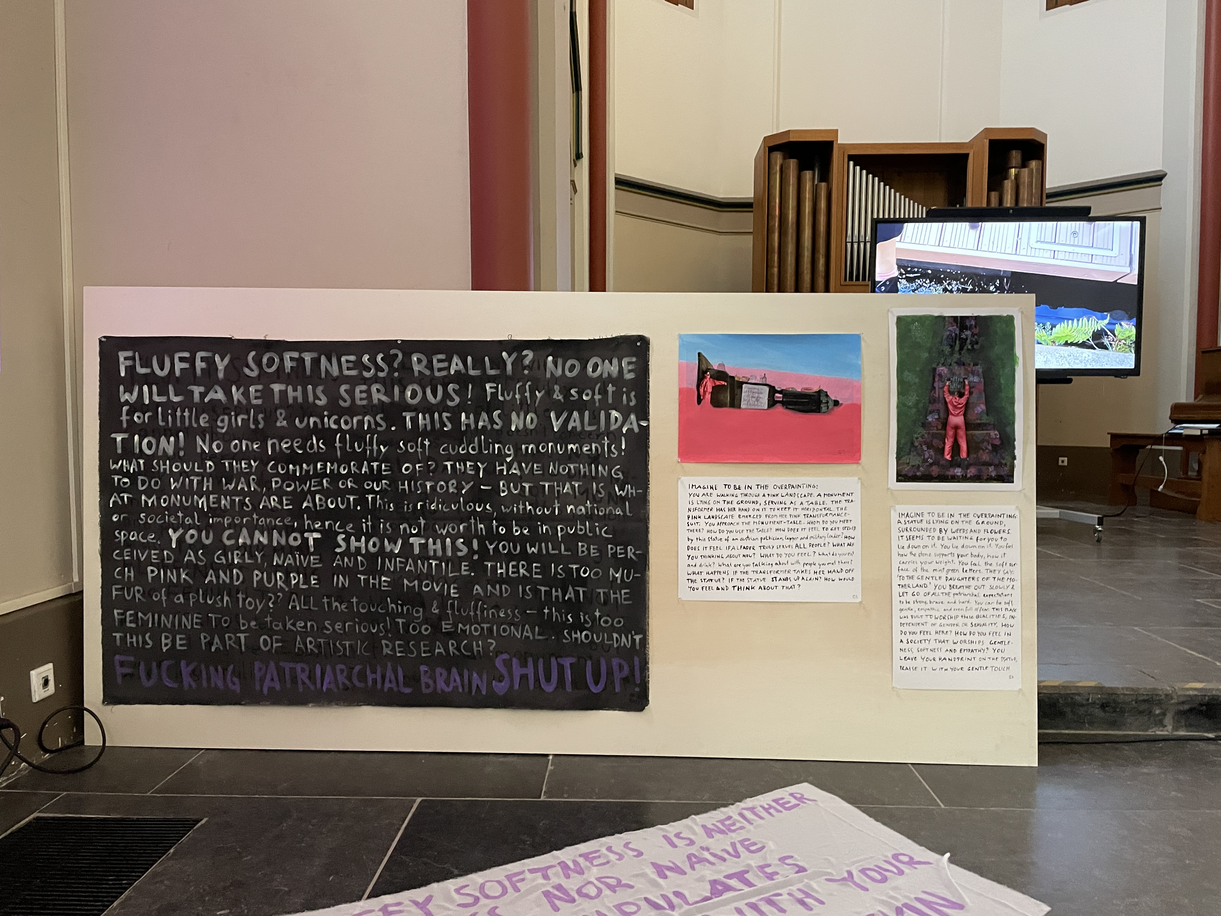 FLUFFY SOFTNESS? REALLY? NO ONE
WILL TAKE THIS SERIOUS! Fluffy & soft is
for little girls & unicorns. THIS HAS NO VALIDA-
TION! No one needs fluffy soft cuddling monuments!
WHAT SHOULD THEY COMMEMORATE OF? THEY HAVE NOTHING
TO DO WITH WAR, POWER OR OUR HISTORY – BUT THAT IS WH-
AT MONUMENTS ARE ABOUT. This is ridiculous, without national
or societal importance, hence it is not worth to be in public
space. YOU CANNOT SHOW THIS! YOU WILL BE PER-
CEIVED AS GIRLY NAÏVE AND INFANTILE. THERE IS TOO MU-
CH PINK AND PURPLE IN THE MOVIE AND IS THAT THE
FUR of a plush toy? All the touching & fluffiness – this is too
FEMININE to be taken serious! Too EMOTIONAL. SHOULDN'T
THIS BE PART OF ARTISTIC RESEARCH?
FUCKING PATRIARCHAL BRAIN SHUT UP!
IMAGINE TO BE IN THE OVERPAINTING:
YOU ARE WALKING THROUGH A PINK LANDSCAPE. A MONUMENT
IS LYING ON THE GROUND, SERVING AS A TABLE. THE TRA-
NSFORMER HAS HER HAND ON IT TO KEEP IT HORIZONTAL. THE
PINK LANDSCAPE EMERGED FROM HER PINK TRANSFORMANCE-
SUIT. YOU APPROACH THE MONUMENT-TABLE. WHOM DO YOU MEET
THERE? HOW DO YOU USE THE TABLE? HOW DOES IT FEEL TO GET SERVED
by this statue of an austrian politician, lawyer and military leader? HOW
DOES IT FEEL IF A LEADER TRULY SERVES ALL PEOPLE? WHAT ARE
YOU THINKING ABOUT NOW? WHAT DO YOU FEEL? What do you eat
and drink? What are you talking about with people you meet there?
WHAT HAPPENS IF THE TRANSFORMER TAKES HER HAND OFF
THE STATUE? IF THE STATUE STANDS UP AGAIN? HOW WOULD
YOU FEEL AND THINK ABOUT THAT?
IMAGINE TO BE IN THE OVERPAINTING
A STATUE IS LYING ON THE GROUND,
SURROUNDED BY WEEDS AND FLOWERS.
IT SEEMS TO BE WAITING FOR YOU TO
lie down on it. You lie down on it. You feel
how the stone supports your body, how it
carries your weight. You feel the soft sur-
face of the mint green letters. THEY SAY:
"TO THE GENTLE DAUGHTERS OF THE MO-
THERLAND." YOU BREATHE OUT SLOWLY &
LET GO OF ALL the patriarchal expectations
to be strong, brave and hard. You can be soft,
gentle, empathic and even full of fear. THIS PLACE
WAS BUILT TO WORSHIP THESE QUALITIES, IN-
DEPENDENT OF GENDER OR SEXUALITY. HOW
DO YOU FEEL HERE? HOW DO YOU FEEL IN
A SOCIETY THAT WORSHIPS GENTLE-
NESS, SOFTNESS AND EMPATHY? YOU
LEAVE YOUR HANDPRINT ON THE STATUE,
PRAISE IT WITH YOUR GENTLE TOUCH.
SOFTNESS IS NEITHER
NOR NAÏVE
WITH YOUR